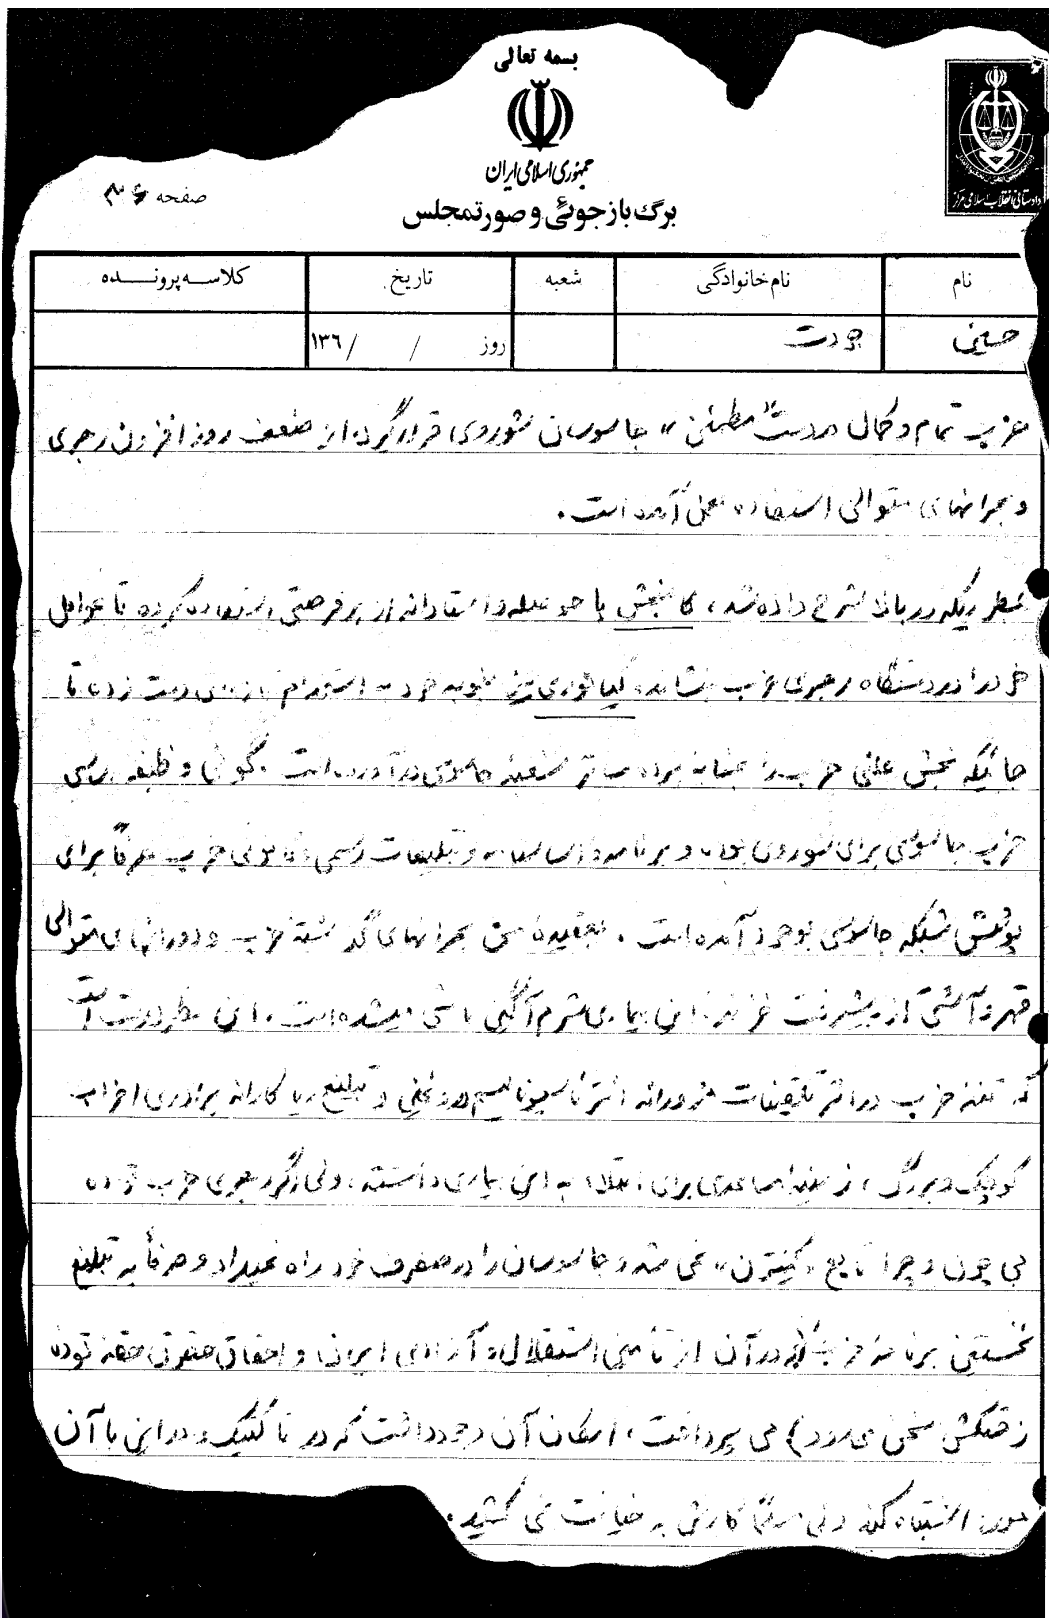 بسمه تعالی
جمهوری اسلامی ایران
دادستانی انقلاب اسلامی مرکز
صفحه
برگ بازجوئی و صورتمجلس
نام نام خانوادگی شعبه تاریخ کلاسه پرونده
جودت روز / / ۱۳۶
حزب تمام و کمال در دست مطمئن جاسوسان شوروی قرار گیرد، از ضعف روز افزون رهبری
و بحرانهای متوالی استفاده بعمل آمده است.
بطریکه در بالا شرح داده شد، کامبخش با حوصله و استادانه از هر فرصتی استفاده کرده تا عوامل
خود را در دستگاه رهبری حزب بنشاند، کیانوری نیز بنوبه خود به استخدام دست زده تا
جائیکه بخش علنی حزب را جاسوسی در آورده است. گوئی وظیفه رسمی
حزب جاسوسی برای شوروی بوده و برنامه و اساسنامه و تبلیغات رسمی و قانونی حزب صرفاً برای
پوشش شبکه جاسوسی بوجود آمده است. بعقیده من بحرانهای گذشته حزب و دورانهای متوالی
قهر و آشتی از پیشرفت این بیماری شرم آگین ناشی میشده است. این نظر درست است
که توده حزب در اثر تلقینات مزورانه انترناسیونالیسم دروغین و تبلیغ ریاکارانه برادری احزاب
کوچک و بزرگ، زمینه مساعدی برای ابتلاء به این بیماری داشته، ولی اگر رهبری حزب توده
بی چون و چرا تابع نمی شد و جاسوسان را در صفوف خود راه نمیداد و صرفاً به تبلیغ
نخستین برنامه حزب (که در آن از تأمین استقلال و آزادی ایران و احقاق حقوق حقه توده
زحمتکش سخن می رود) می پرداخت، امکان آن وجود داشت که در تاکتیک و در این یا آن
مورد اشتباه کند ولی کارش به خیانت نمی کشید.